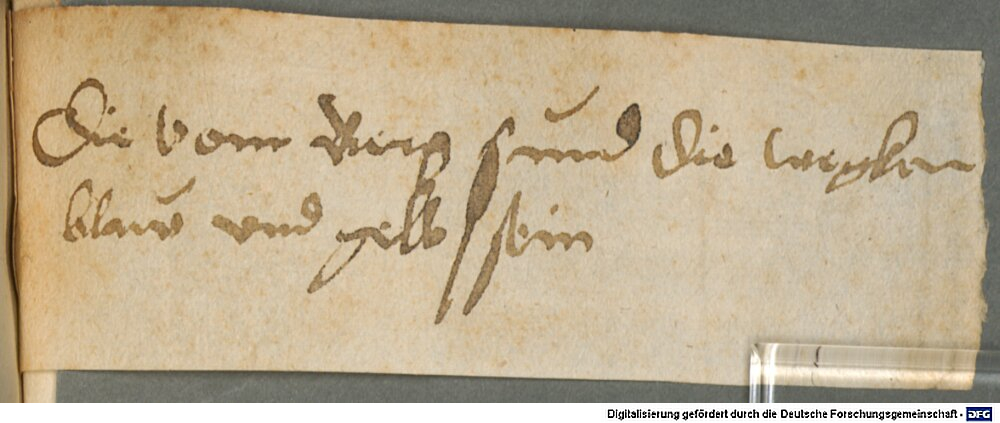 Die vom Berg sund die wegken
blaw vnd gelb sein
Digitalisierung gefördert durch die Deutsche Forschungsgemeinschaft - DFG